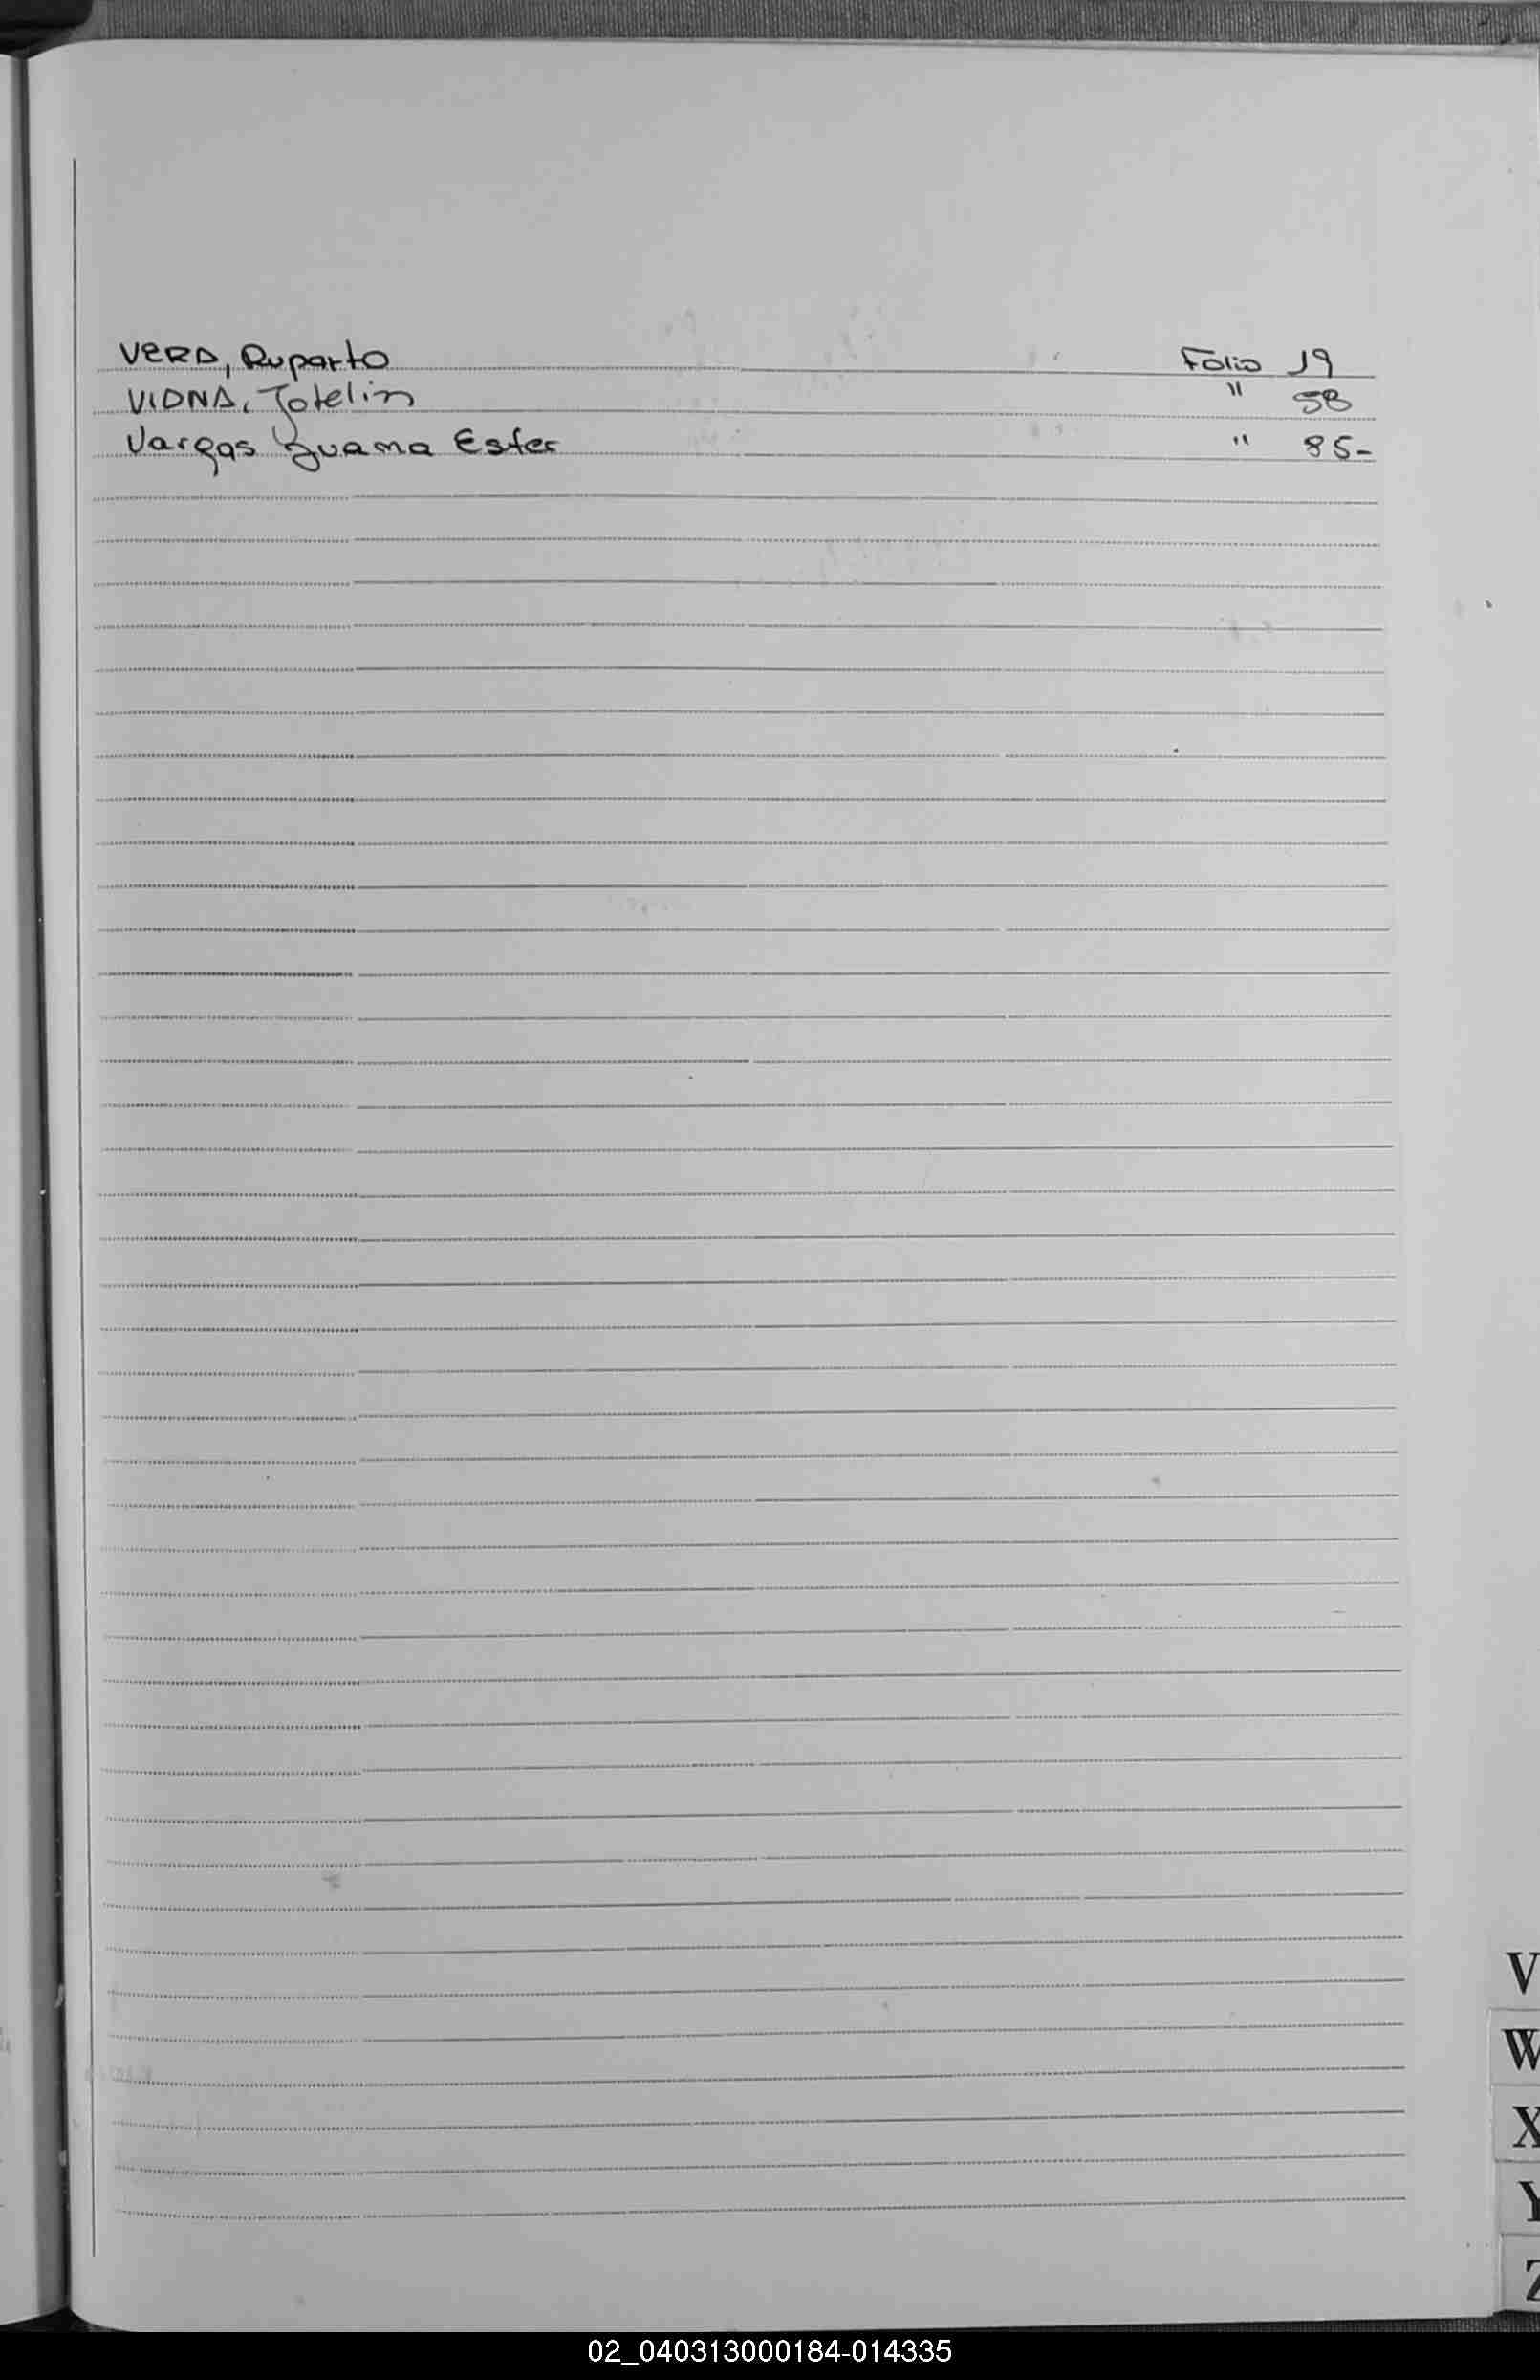 VERA, Ruparto Folio 19
VIDNA, Jotelin " 58
Vargas Juama Ester " 85-
V
W
X
Y
Z
02_040313000184-014335